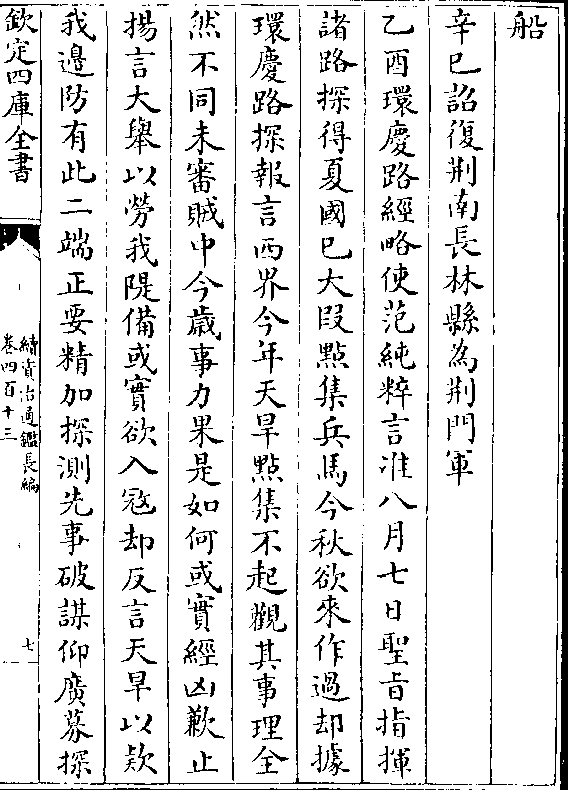 船
辛巳詔復荆南長林縣為荆門軍
乙酉環慶路經略使范純粹言准八月七日聖㫖指揮
諸路探得夏國已大叚點集兵馬今秋欲來作過却據
環慶路探報言西界今年天旱點集不起觀其事理全
然不同未審賊中今歳事力果是如何或實經凶歉止
揚言大舉以勞我隄備或實欲入冦却反言天旱以欵
我邊防有此二端正要精加探測先事破謀仰廣募探
欽定四庫全書
續資治通鑑長編
卷四百十三
七